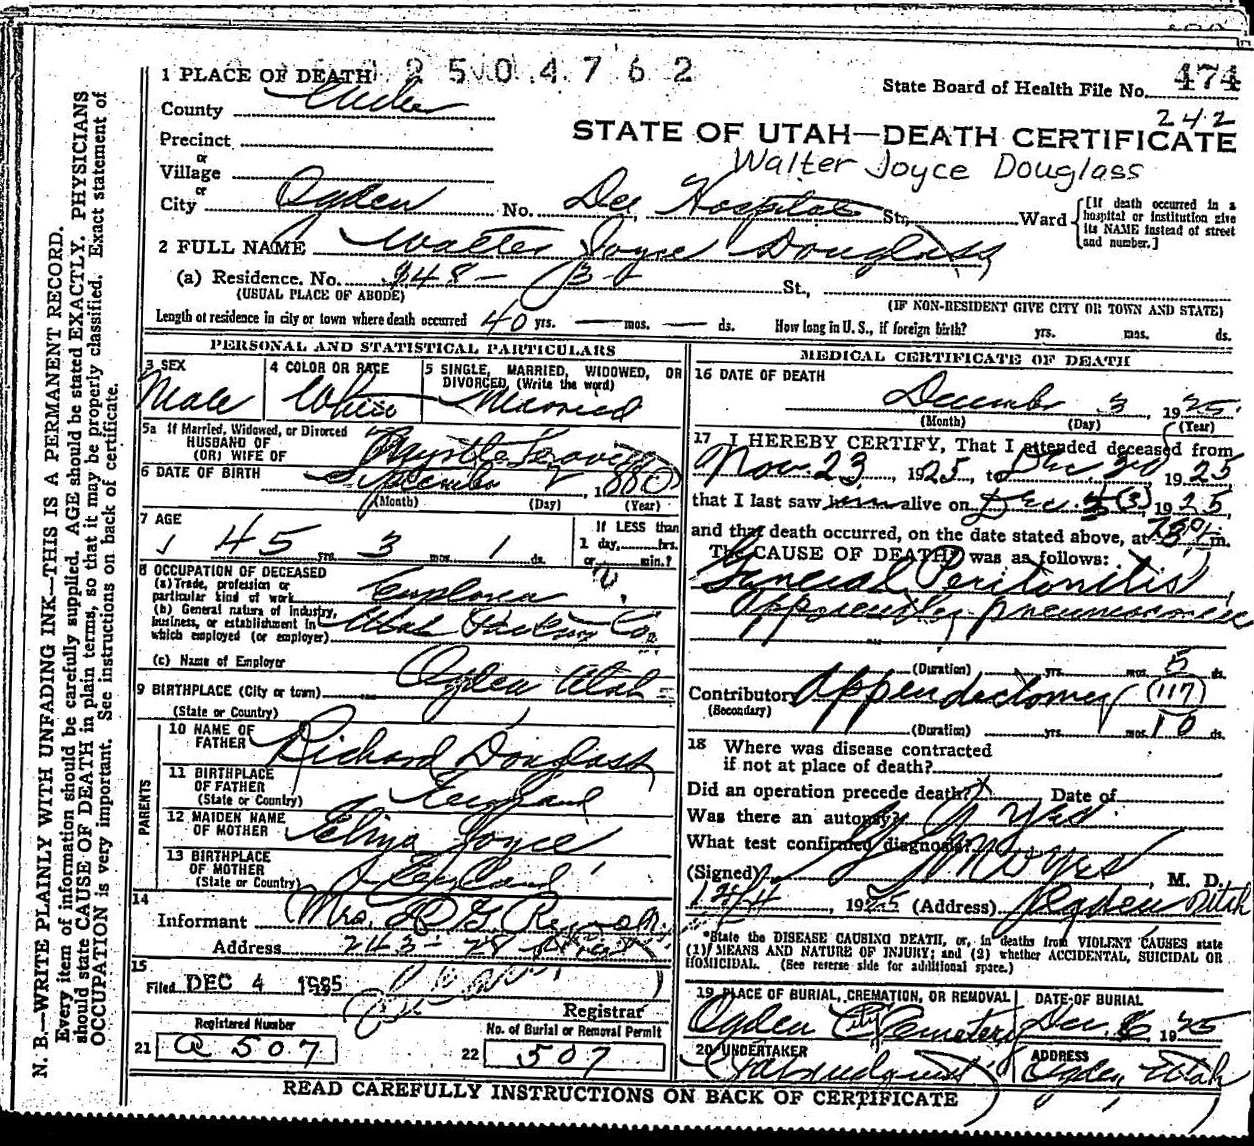 2 5 0 4 7 6 2
1 PLACE OF DEATH
State Board of Health File No. 474
County
242
Precinct
STATE OF UTAH—DEATH CERTIFICATE
or
Walter Joyce Douglass
Village
or
City Ogden No. Dee Hospital St., Ward
[If death occurred in a hospital or institution give its NAME instead of street and number.]
2 FULL NAME Walter Joyce Douglass
(a) Residence. No. 348 - St.,
(USUAL PLACE OF ABODE) (IF NON-RESIDENT GIVE CITY OR TOWN AND STATE)
Length of residence in city or town where death occurred 40 yrs. — mos. — ds. How long in U. S., if foreign birth? yrs. mos. ds.
PERSONAL AND STATISTICAL PARTICULARS
3 SEX
Male
4 COLOR OR RACE
White
5 SINGLE, MARRIED, WIDOWED, OR
DIVORCED (Write the word)
Married
5a If Married, Widowed, or Divorced
HUSBAND OF
(OR) WIFE OF Myrtle
6 DATE OF BIRTH September 2, 1880
(Month) (Day) (Year)
7 AGE
45 yrs. 3 mos. 1 ds.
If LESS than
1 day, hrs.
or min.?
8 OCCUPATION OF DECEASED
(a) Trade, profession or
particular kind of work
(b) General nature of industry,
business, or establishment in
which employed (or employer) Utah Co.
(c) Name of Employer
9 BIRTHPLACE (City or town) Ogden Utah
(State or Country)
PARENTS
10 NAME OF
FATHER Richard Douglass
11 BIRTHPLACE
OF FATHER
(State or Country) England
12 MAIDEN NAME
OF MOTHER Joyce
13 BIRTHPLACE
OF MOTHER
(State or Country) England
14
Informant Mrs.
Address 243 - 28
15
Filed DEC 4 1925
Registrar
Registered Number
21 a 507
No. of Burial or Removal Permit
22 507
MEDICAL CERTIFICATE OF DEATH
16 DATE OF DEATH
December 3, 1925
(Month) (Day) (Year)
17 I HEREBY CERTIFY, That I attended deceased from
Nov. 23, 1925, to Dec. 3d 1925
that I last saw him alive on Dec. 3 (3), 1925,
and that death occurred, on the date stated above, at m.
The CAUSE OF DEATH* was as follows:
General Peritonitis,
(Duration) yrs. mos. 5 ds.
Contributory Appendectomy (117)
(Secondary)
(Duration) yrs. mos. 10 ds.
18 Where was disease contracted
if not at place of death?
Did an operation precede death? X Date of
Was there an autopsy? Yes
What test confirmed diagnosis?
(Signed) , M. D.
12/4, 1925 (Address) Ogden Utah
*State the DISEASE CAUSING DEATH, or, in deaths from VIOLENT CAUSES state
(1) MEANS AND NATURE OF INJURY; and (2) whether ACCIDENTAL, SUICIDAL OR
HOMICIDAL. (See reverse side for additional space.)
19 PLACE OF BURIAL, CREMATION, OR REMOVAL
Ogden City Cemetery
DATE OF BURIAL
Dec. 6 1925
20 UNDERTAKER
ADDRESS
Ogden Utah
READ CAREFULLY INSTRUCTIONS ON BACK OF CERTIFICATE
N. B.—WRITE PLAINLY WITH UNFADING INK—THIS IS A PERMANENT RECORD.
Every item of information should be carefully supplied. AGE should be stated EXACTLY. PHYSICIANS
should state CAUSE OF DEATH in plain terms, so that it may be properly classified. Exact statement of
OCCUPATION is very important. See instructions on back of certificate.